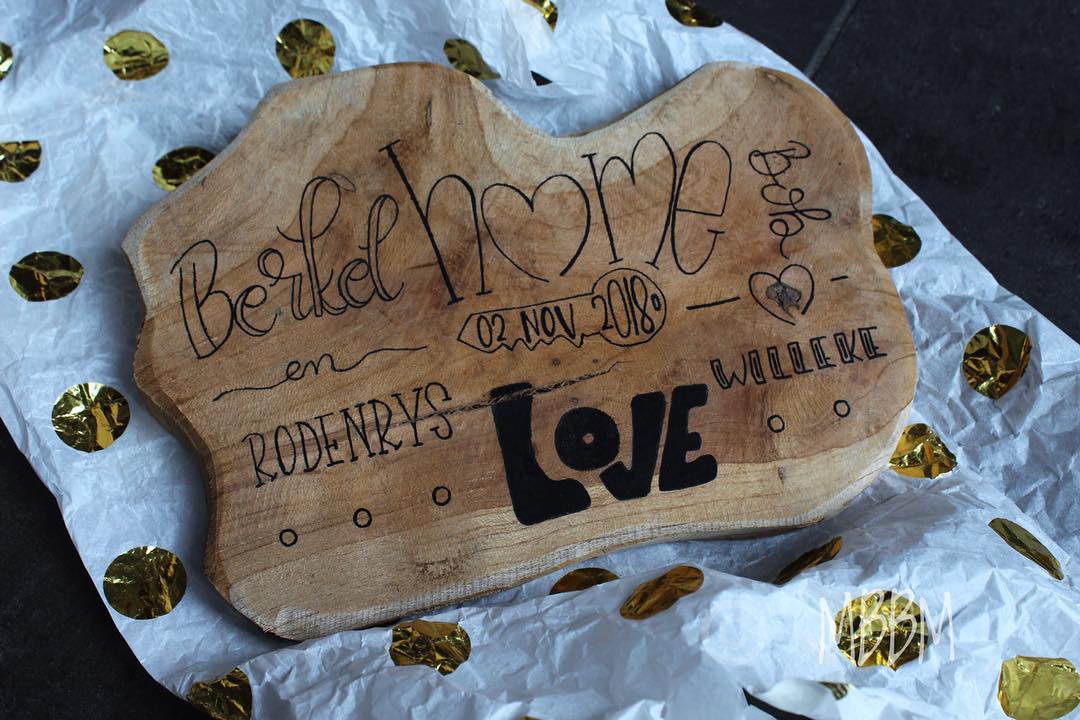 Berkel
en
RODENRYS
home
02 NOV. 2018
LOVE
Bob
WILLEKE
MBBM